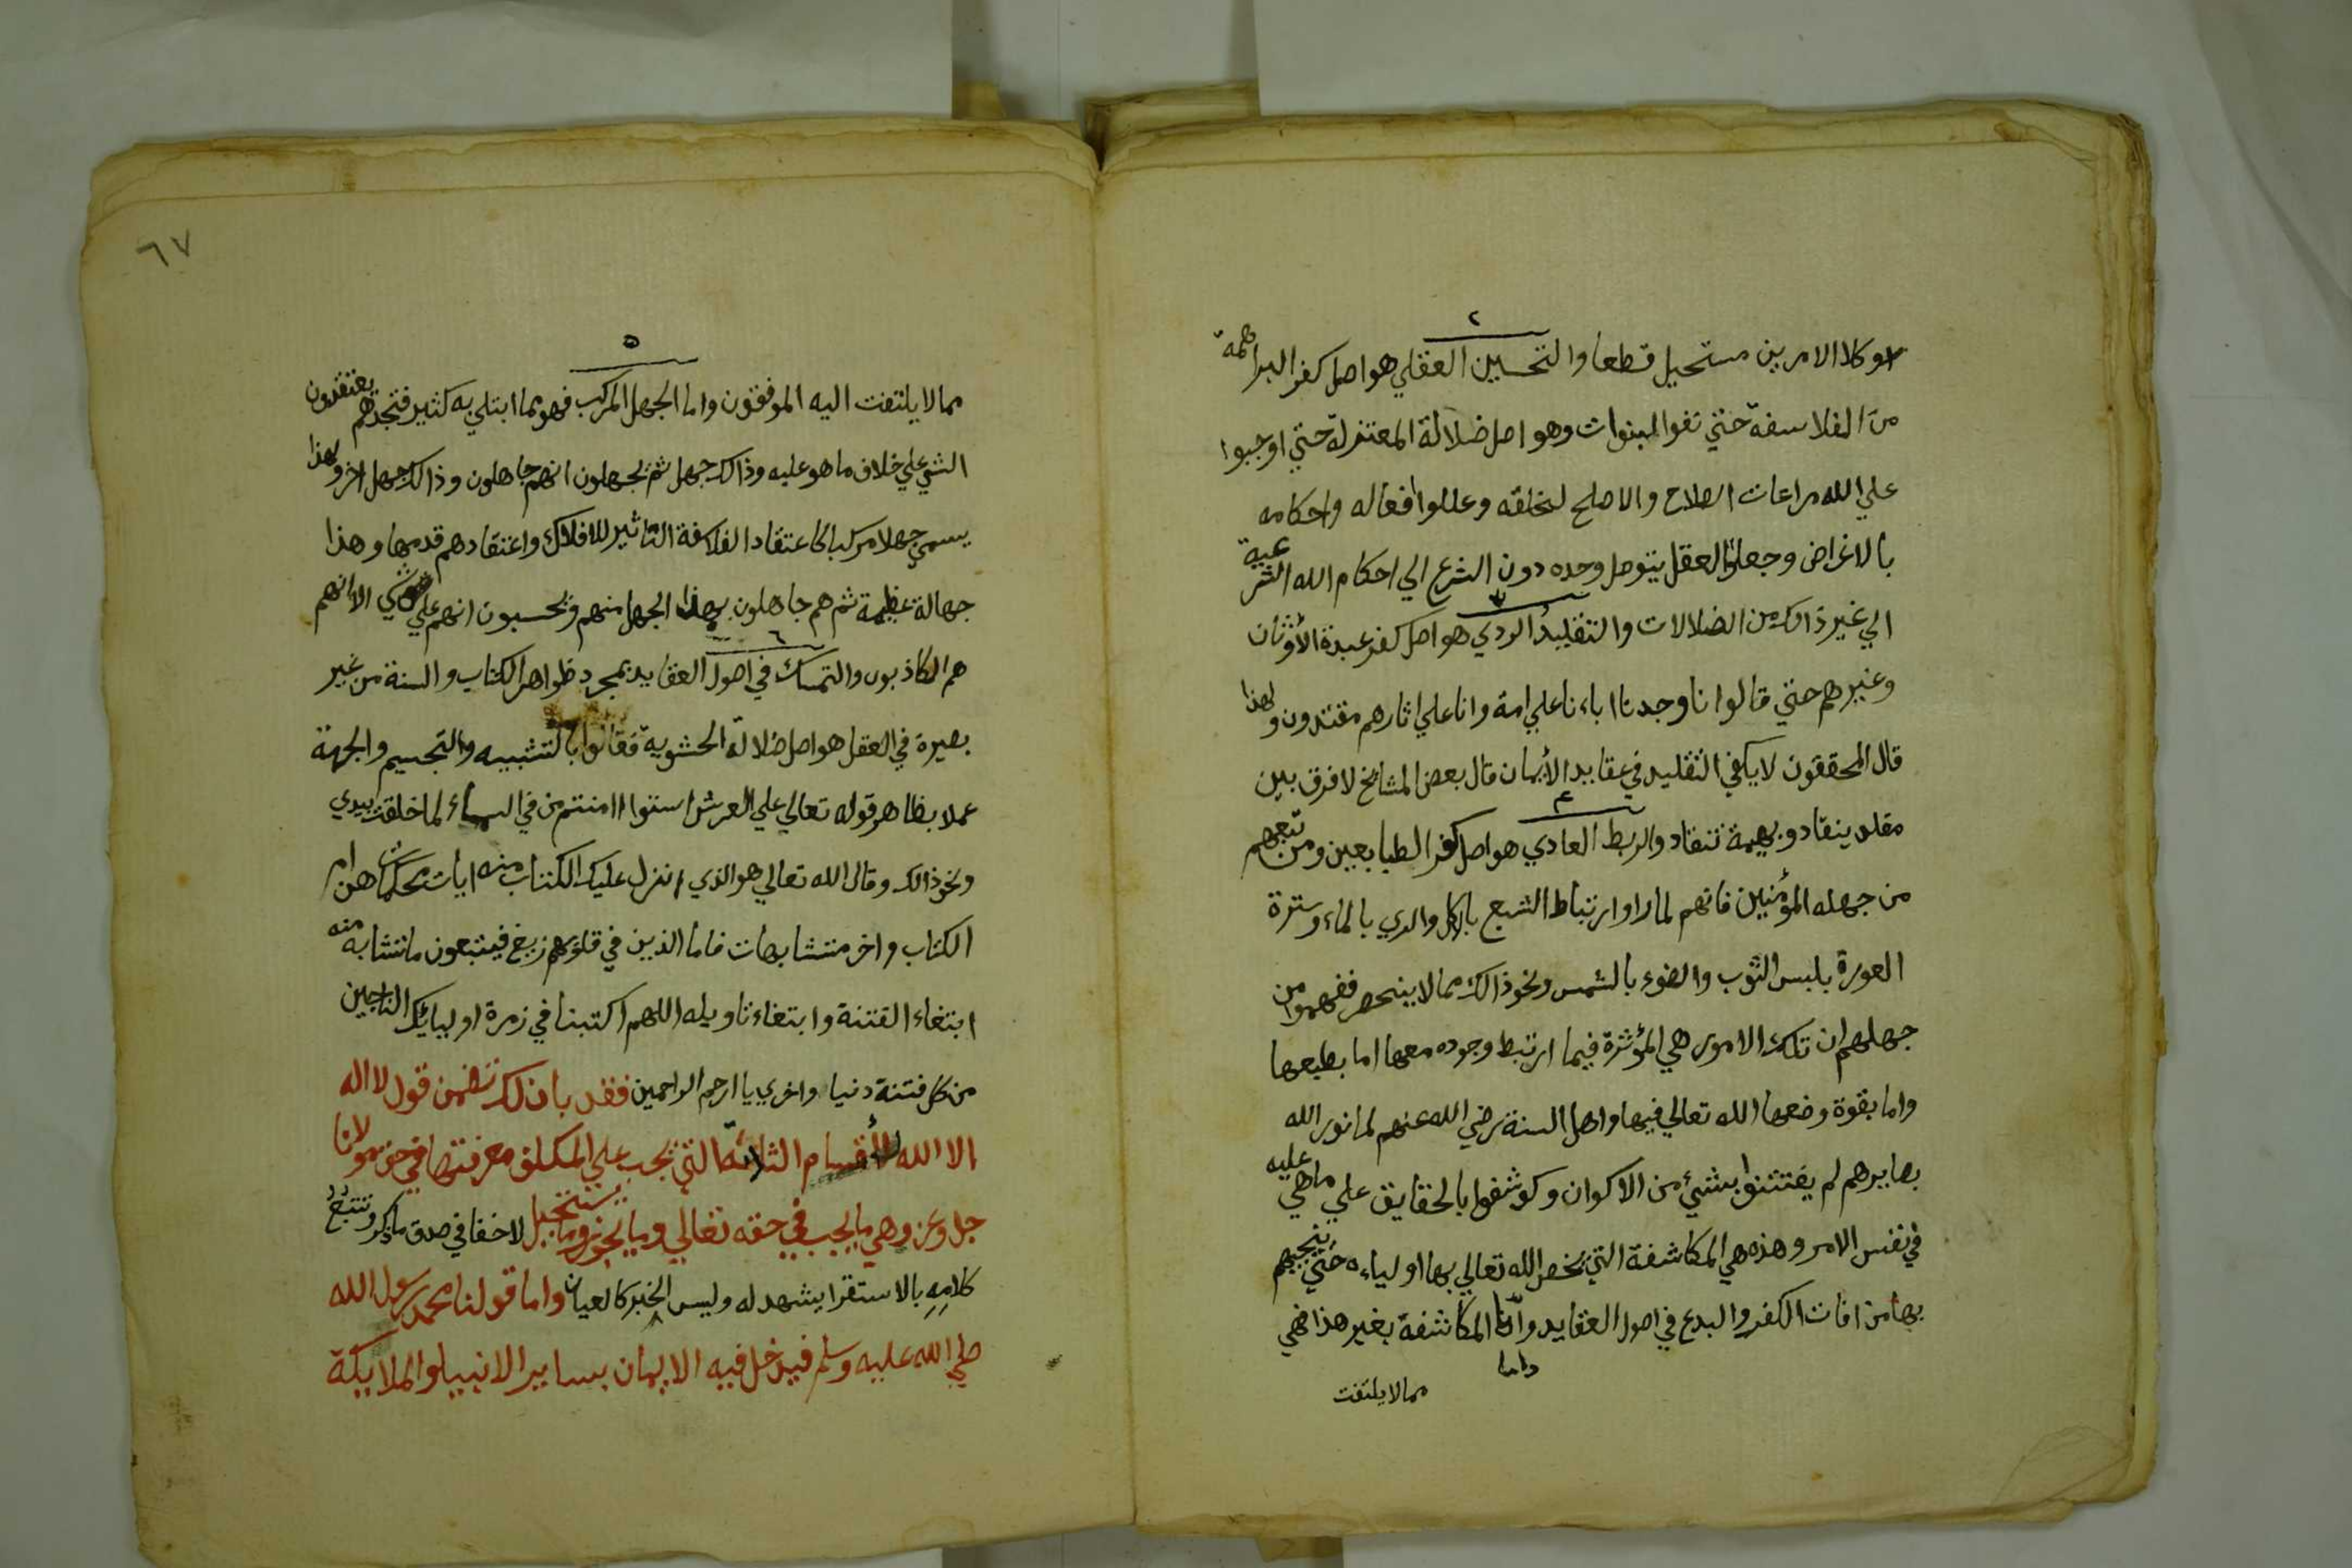 ٢
وكلا الامرين مستحيل قطعا والتحسين العقلي هو اصل كفر البراهمة
من الفلاسفة حتي نفوا النبوات وهو اصل ضلالة المعتزلة حتي اوجبوا
علي الله مراعات الصلاح والاصلح لخلقه وعللوا افعاله واحكامه
بالاغراض وجعلوا العقل يتوصل وحده دون الشرع الي احكام الله الشرعية
الي غير ذالك من الضلالات والتقليد الردي هو اصل كفر عبدة الأوثان
وغيرهم حتي قالوا انا وجدنا اباءنا علي امة وانا علي اثارهم مقتدون ولهذا
قال المحققون لا يكفي التقليد في عقايد الأيمان قال بعض المشائخ لا فرق بين
٤
مقلد ينقاد وبهيمة تنقاد والربط العادي هو اصل كفر الطبايعيين ومن تبعهم
من جهلة المؤمنين فانهم لما راوا ارتباط الشبع بالاكل والري بالماء وسترة
العورة بلبس الثوب والضوء بالشمس ونحو ذالك مما لا ينحصر ففهموا من
جهلهم ان تلك الامور هي المؤثرة فيما ارتبط وجوده معها اما بطبعها
واما بقوة وضعها الله تعالي فيها واهل السنة رضي الله عنهم لما نور الله
بصايرهم لم يفتتنوا بشيئ من الاكوان وكوشفوا بالحقايق علي ما هي عليه
في نفس الامر وهذه هي المكاشفة التي يخص الله تعالي بها اولياءه حتي ينجيهم
بها من افات الكفر والبدع في اصول العقايد وأما المكاشفة بغير هذا فهي
واما
مما لا يلتفت
٦٧
٥
مما لا يلتفت اليه الموفقون واما الجهل المركب فهو مما ابتلي به كثير فتجدهم يعتقدون
الشئ علي خلاف ما هو عليه وذالك جهل ثم يجهلون انهم جاهلون وذالك جهل اخر ولهذا
يسمي جهلا مركبا كاعتقاد الفلاسفة التاثير للافلاك واعتقادهم قدمها وهذا
جهالة عظيمة ثم هم جاهلون بهذا الجهل منهم ويحسبون انهم علي شئ الا انهم
٦
هم الكاذبون والتمسك في اصول العقايد بمجرد ظواهر الكتاب والسنة من غير
بصيرة في العقل هو اصل ضلالة الحشوية فقالوا بالتشبيه والتجسيم والجهة
عملا بظاهر قوله تعالي علي العرش استوا اامنتم من في السماء لما خلقت بيدي
ونحو ذالك وقال الله تعالي هو الذي انزل عليك الكتاب منه ايات محكمات هن ام
الكتاب واخر متشابهات فاما الذين في قلوبهم زيغ فيتبعون ما تشابه منه
ابتغاء الفتنة وابتغاء تاويله اللهم اكتبنا في زمرة اوليائك الناجين
من كل فتنة دنيا واخري يا ارحم الراحمين فقد بان لك تضمن قول لا اله
الا الله للأقسام الثلاثة التي تجب علي المكلف معرفتها في حق مولانا
جل وعز وهي ما يجب في حقه تعالي وما يجوز وما يستحيل لا خفا في صدق ما ذكر وتتبع
كلامه بالاستقرا يشهد له وليس الخبر كالعيان واما قولنا محمد رسول الله
صلي الله عليه وسلم فيدخل فيه الايمان بساير الانبيا والملايكة